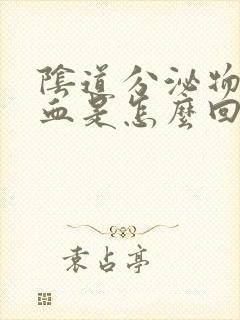 陰道分泌物
血是怎麼回
袁占亭